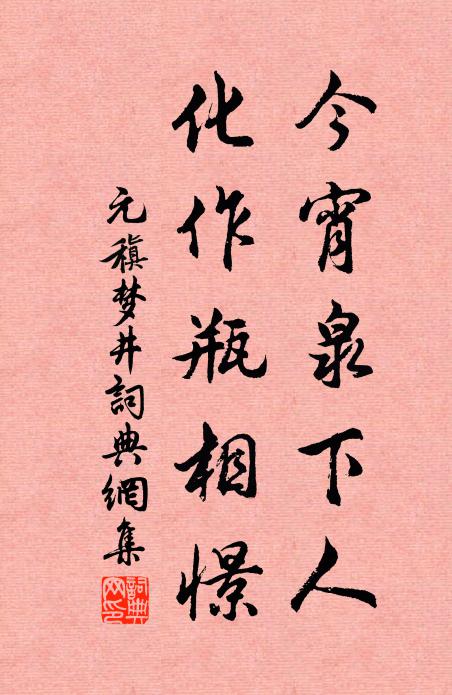 今宵泉下人
化作瓶相憬
元稹梦井詞典網集
詞典网印